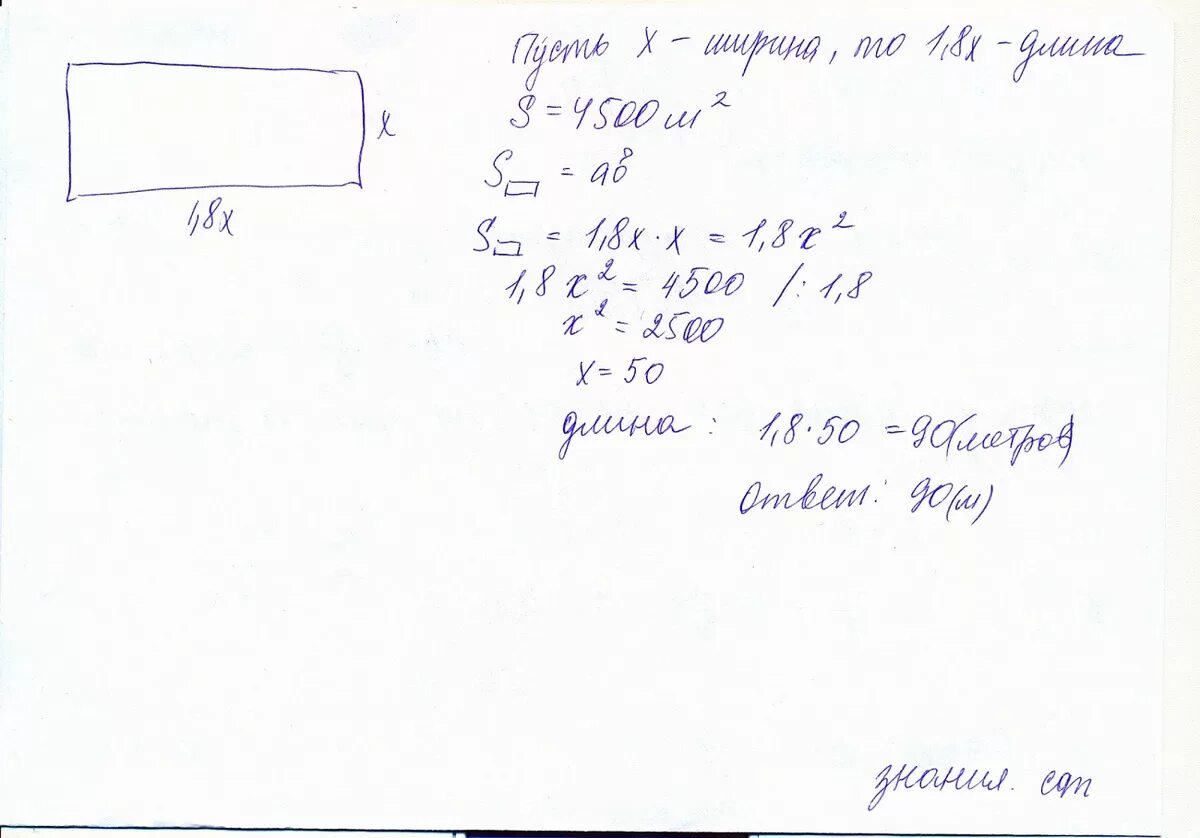 Пусть x – ширина, то 1,8x – длина
S = 4500 м²
S▭ = ав
S▭ = 1,8x · x = 1,8x²
1,8x² = 4500 /: 1,8
x² = 2500
x = 50
длина: 1,8 · 50 = 90(метров)
ответ: 90(м)
x
1,8x
знания. сап